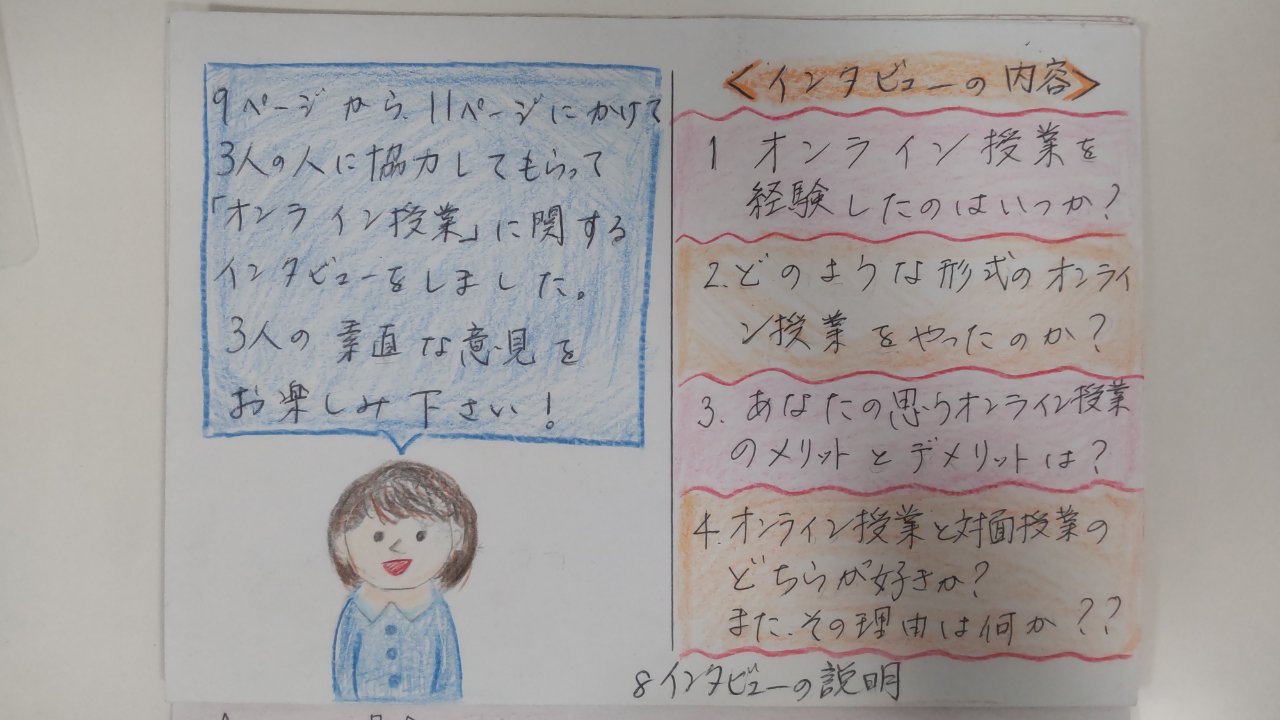 9ページから、11ページにかけて
3人の人に協力してもらって
「オンライン授業」に関する
インタビューをしました。
3人の素直な意見を
お楽しみ下さい！
＜インタビューの内容＞
1 オンライン授業を
経験したのはいつか？
2.どのような形式のオンライ
ン授業をやったのか？
3.あなたの思うオンライン授業
のメリットとデメリットは？
4.オンライン授業と対面授業の
どちらが好きか？
また、その理由は何か？？
8 インタビューの説明